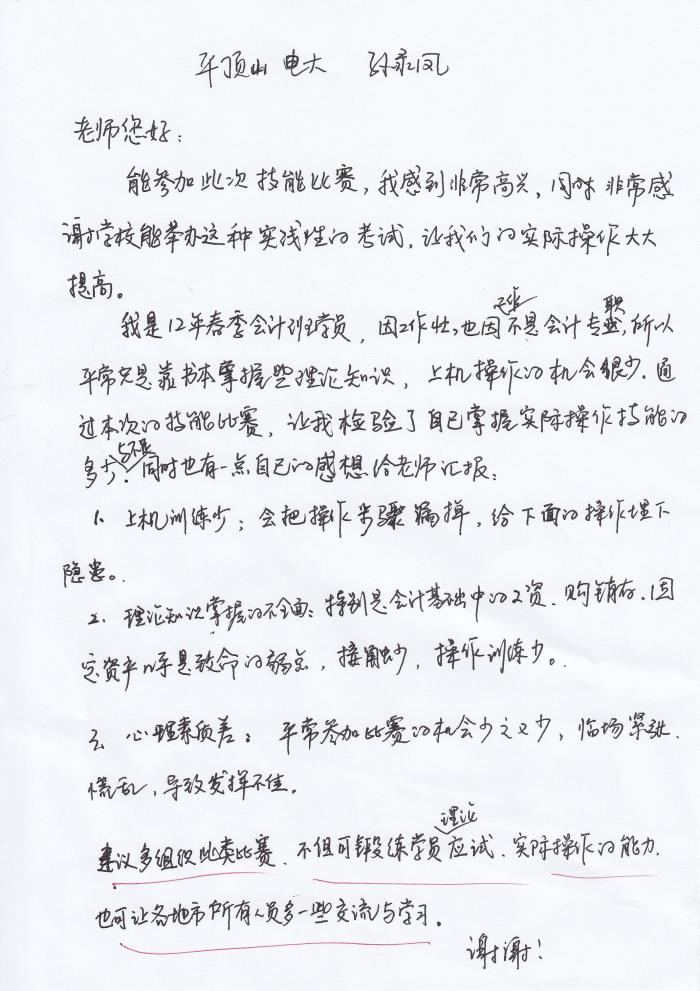 平顶山 电大 孙孟凤
老师您好：
能参加此次技能比赛，我感到非常高兴，同时非常感
谢学校能举办这种实践性的考试，让我们的实际操作大大
提高。
我是12年春季会计班学员，因工作忙，也因不是会计专业职，所以
平常只是靠书本掌握些理论知识，上机操作的机会很少．通
过本次的技能比赛，让我检验了自己掌握实际操作技能的
多少与不足．同时也有一点自己的感想给老师汇报：
1. 上机训练少；会把操作步骤漏掉，给下面的操作埋下
隐患。
2. 理论知识掌握的不全面：特别是会计基础中的工资．购销存．固
定资产等是致命的弱点，接触少，操作训练少。
3. 心理素质差：平常参加比赛的机会少之又少，临场紧张．
慌乱，导致发挥不佳。
建议多组织此类比赛．不但可锻练学员理论应试．实际操作的能力．
也可让各地市所有人员多一些交流与学习。
谢谢！